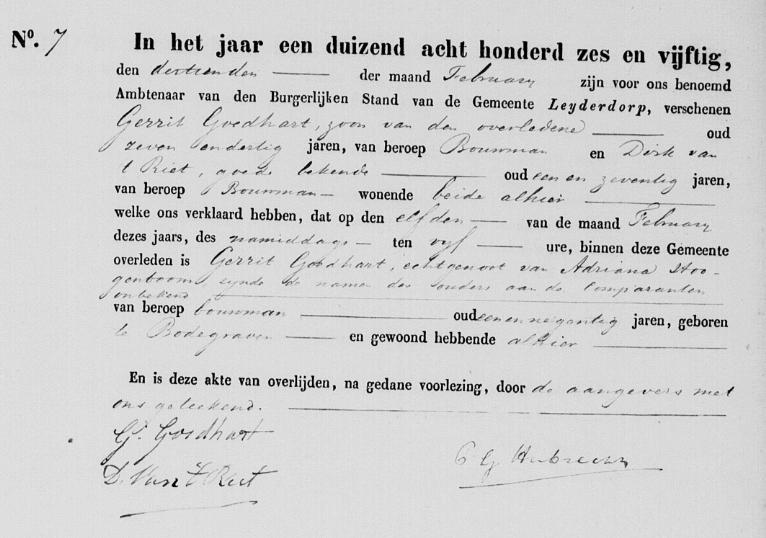 No. 7 In het jaar een duizend acht honderd zes en vijftig,
den dertienden der maand February zijn voor ons benoemd
Ambtenaar van den Burgerlijken Stand van de Gemeente Leyderdorp, verschenen
Gerrit Goedhart, zoon van den overledene oud
zeven endertig jaren, van beroep Bouwman en Dirk van
t Riet, goede bekende oud een en zeventig jaren,
van beroep Bouwman wonende beide alhier
welke ons verklaard hebben, dat op den elfden van de maand February
dezes jaars, des namiddags ten vyf ure, binnen deze Gemeente
overleden is Gerrit Goedhart, echtgenoot van Adriana Hoo-
genboom, zynde de namen des ouders aan de Comparanten
onbekend
van beroep bouwman oud een en negentig jaren, geboren
te Bodegraven en gewoond hebbende alhier
En is deze akte van overlijden, na gedane voorlezing, door de aangevers met
ons geteekend.
G. Goedhart
D. Van T Riet